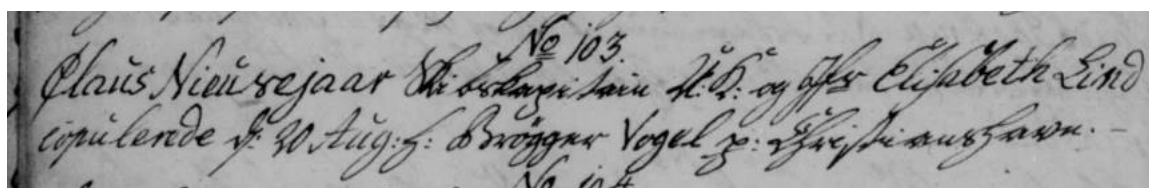 No 103.
Claus Nieuwejaar Skibskapitain U: K: og Jfr Elisabeth Lind
copulerede d: 20 Aug: h: Brögger Vogel p: Christianshavn. –
No 104